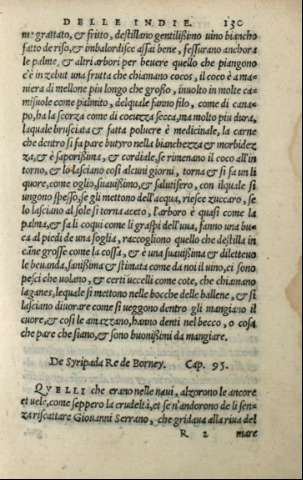 DELLE INDIE. 130
me grattato, & fritto, destillano gentilißimo uino biancho
fatto de riso, & imbalordisce assai bene, fessurano anchora
le palme, & altri arbori per beuere quello che piangono
c'è in zebut una frutta che chiamano cocos, il coco è a ma
niera di mellone piu longo che grosso, inuolto in molte ca-
misuole como palmito, del quale fanno filo, come di cana-
po, ha la scorza come di cocuzza secca, ma molto piu dura,
laquale brusciata & fatta poluere è medicinale, la carne
che dentro si fa pare butyro nella bianchezza & morbidez
za, & è saporißima, & cordiale, se rimenano il coco all'in
torno, & lo lasciano così alcuni giorni, torna & si fa un li
quore, come oglio, suauißimo, & salutifero, con ilquale si
ungono spesso, se gli mettono dell'acqua, riesce zuccaro, se
lo lasciano al sole si torna aceto, l'arboro è quasi come la
palma, & fa li coqui come li graspi dell'uua, fanno una bu-
ca al piedi de una foglia, raccogliono quello che destilla in
cāne grosse come la cossa, & è una suauißima & dilettuo
le beuanda, sanißima & stimata come da noi il uino, ci sono
pesci che uolano, & certi uccelli come cote, che chiamano
laganes, lequale si mettono nelle bocche delle ballene, & si
lasciano diuorare come si ueggono dentro gli mangiano il
cuore, & cosi le amazzano, hanno denti nel becco, o cosa
che pare che siano, & sono buonißimi da mangiare.
De Syripada Re de Borney. Cap. 95.
QVELLI che erano nelle naui, alzorono le ancore
et uele, come seppero la crudeltà, et se n'andorono de li sen-
za riscattare Giouanni Serrano, che gridaua alla riua del
R 2 mare